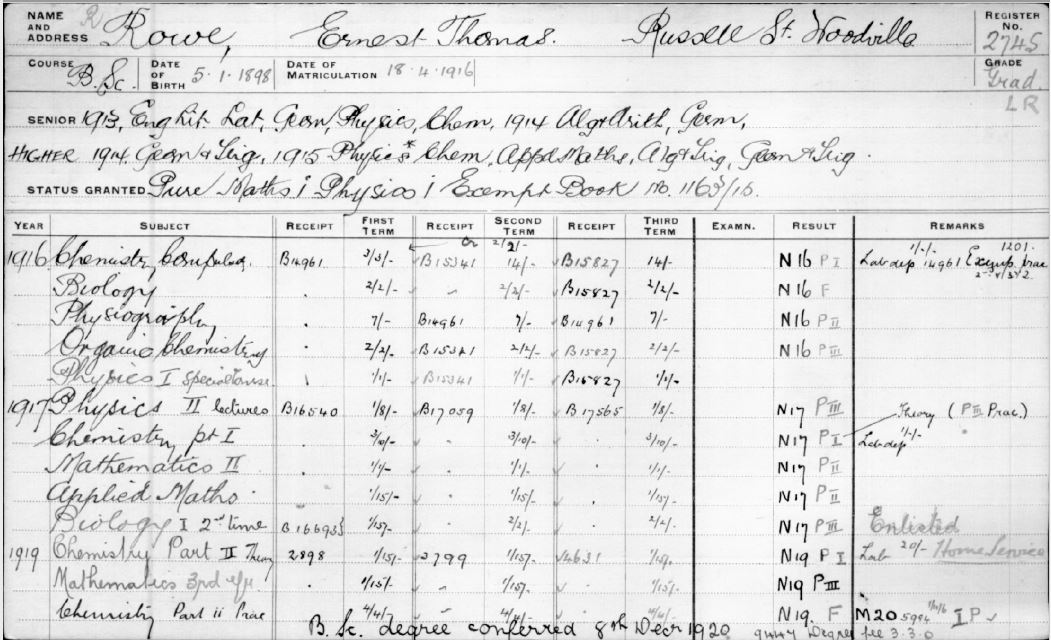 NAME AND ADDRESS R Rowe, Ernest Thomas. Russell St. Woodville REGISTER No. 2745
COURSE B. Sc. DATE OF BIRTH 5.1.1898 DATE OF MATRICULATION 18.4.1916 GRADE Grad. LR
SENIOR 1913, Eng Lit. Lat, Geom, Physics, Chem, 1914 Alg & Arith, Geom,
HIGHER 1914 Geom & Trig, 1915 Physics* Chem, Appd Maths, Alg & Trig, Geom & Trig.
STATUS GRANTED Pure Maths i Physics i Exempt Book no.
YEAR SUBJECT RECEIPT FIRST TERM RECEIPT SECOND TERM RECEIPT THIRD TERM EXAMN. RESULT REMARKS
or 2/2/- 1/-/- 1201
1916 Chemistry B14961 B15341 14/- B15827 14/- N16 P I Lab dep 14961
Biology 2/2/- " 2/2/- B15827 2/2/- N16 F
Physiography . 7/- B14961 7/- B14961 7/- N16 P II
Organic Chemistry . 2/2/- B15341 2/2/- B15827 2/2/- N16 P III
Physics I Special Course 1/1/- B15341 1/1/- B15827 1/1/-
1917 Physics II lectures B16540 1/8/- B17059 1/8/- B17565 1/8/- N17 P III Theory (P III Prac.)
Chemistry pt I . 3/10/- . 3/10/- . 3/10/- N17 P I Lab dep 1/-/-
Mathematics II 1/1/- . 1/1/- 1/1/- N17 P II
Applied Maths . 1/15/- . 1/15/- 1/15/- N17 P II
Biology I 2nd time B16693} 1/15/- 2/2/- . 2/2/- N17 P III Enlisted
1919 Chemistry Part II Theory 2898 1/15/- 3799 1/15/- 4631 1/15/- N19 P I Lab 20/- Home Service
Mathematics 3rd . 1/15/- . 1/15/- . 1/15/- N19 P III
Chemistry Part ii Prac . 4/4/- " 4/4/- 4/4/- N19. F M20 5994 I P
B. Sc. degree conferred 8th Decr 1920 9447 Degree fee 3.3.0